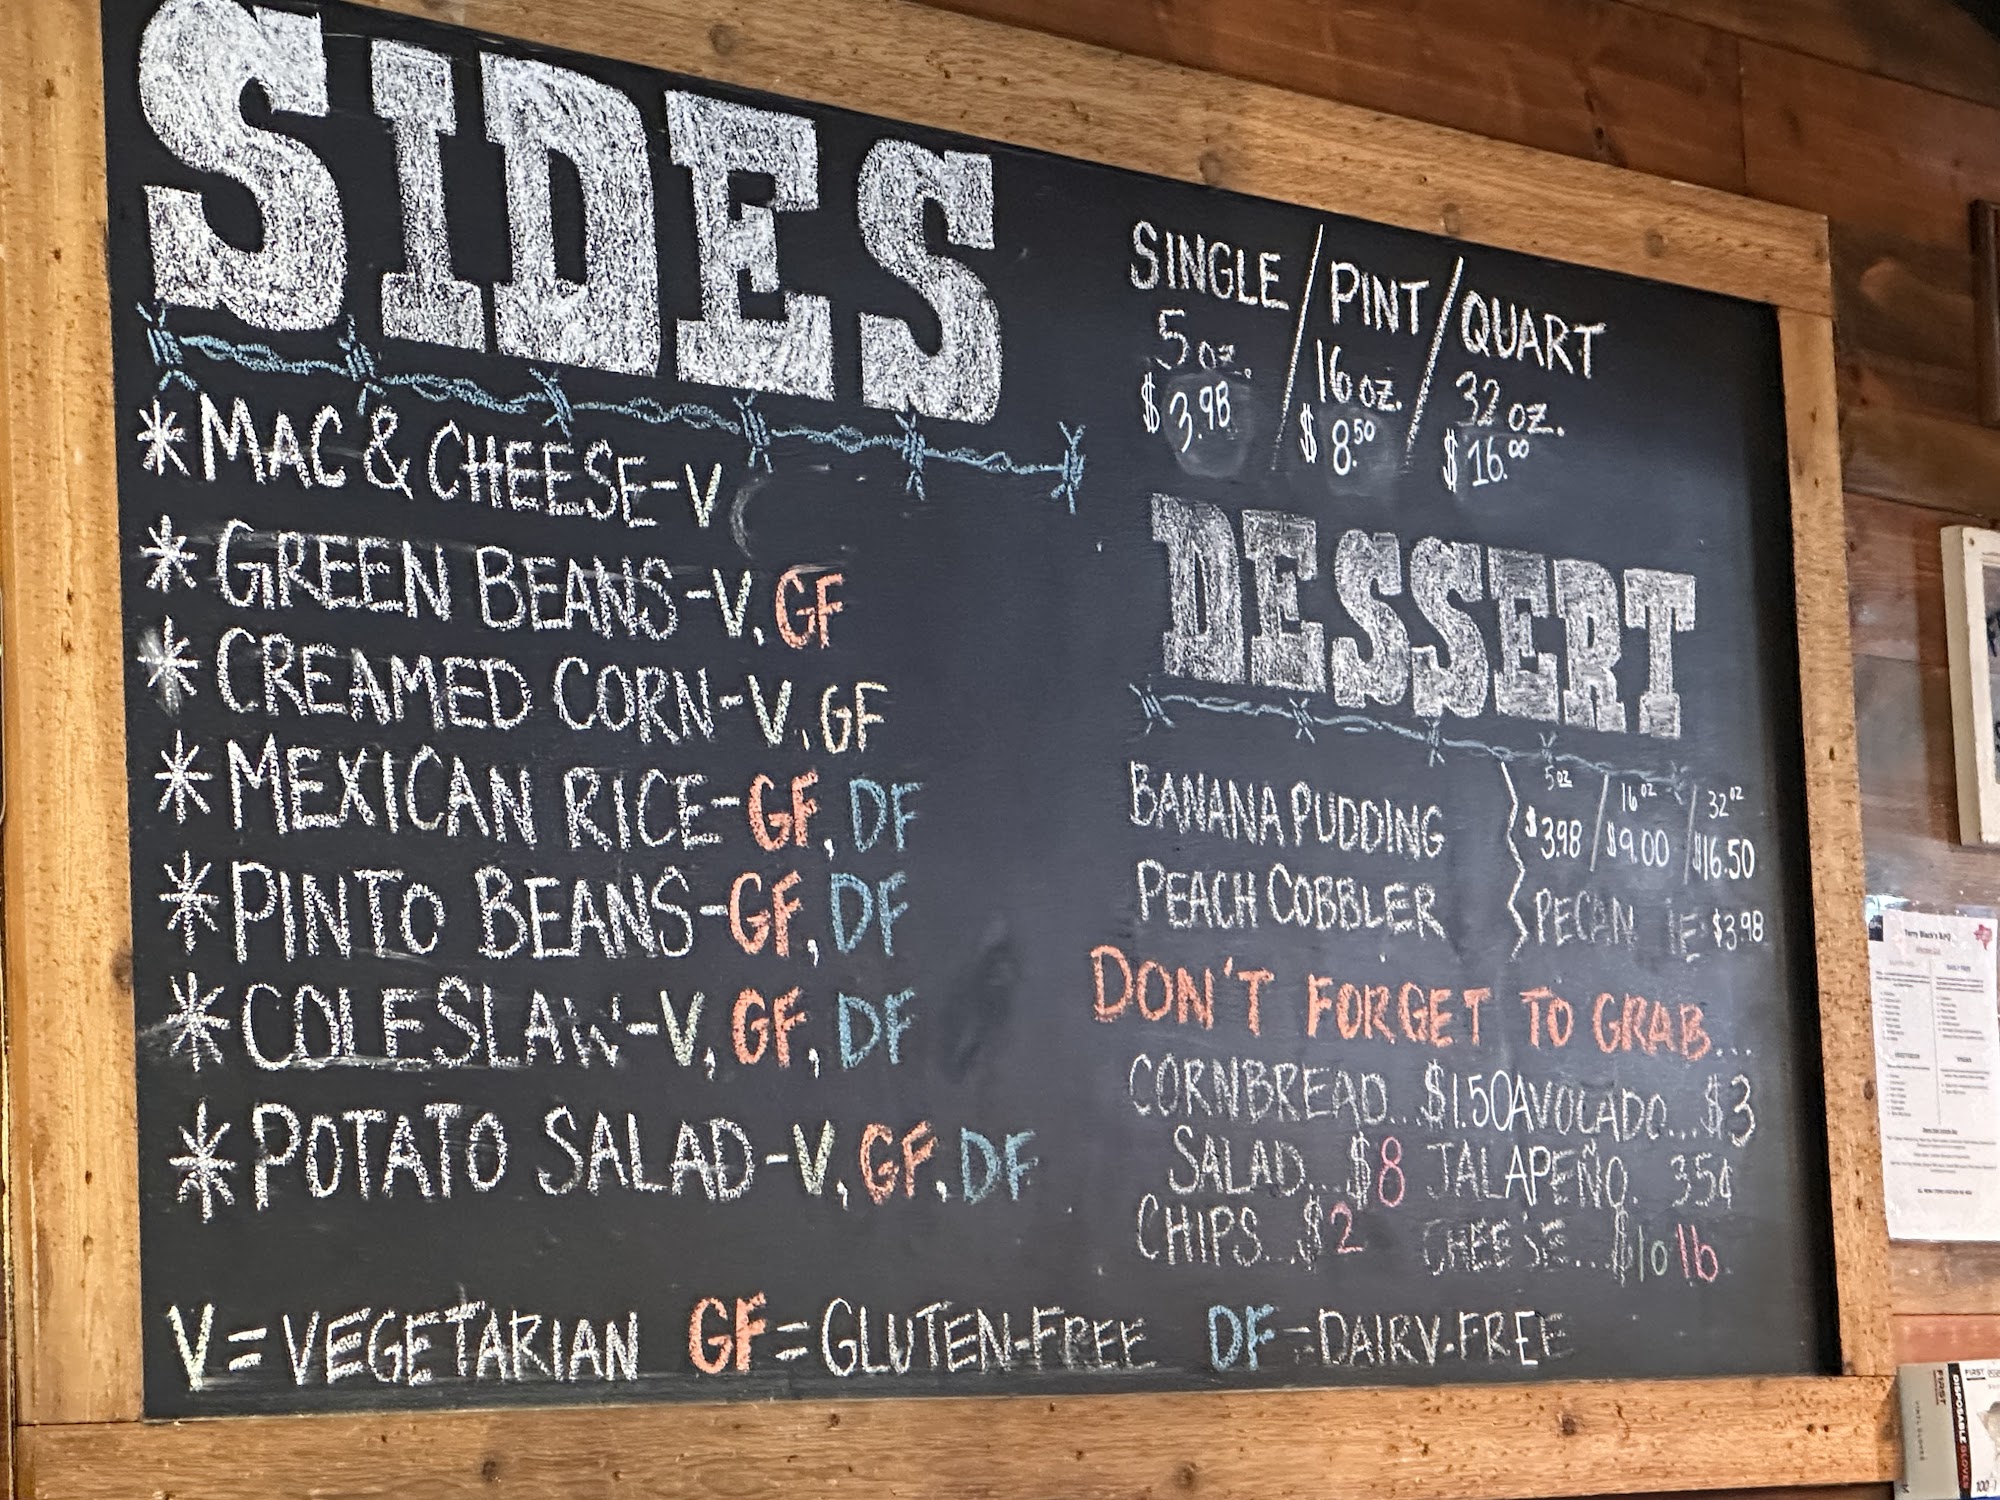 SIDES
* MAC & CHEESE-V
* GREEN BEANS-V, GF
* CREAMED CORN-V, GF
* MEXICAN RICE-GF, DF
* PINTO BEANS-GF, DF
* COLESLAW-V, GF, DF
* POTATO SALAD-V, GF, DF
SINGLE / PINT / QUART
5 oz. 16 oz. 32 oz.
$3.98 $8.50 $16.00
DESSERT
5 oz / 16 oz / 32 oz
BANANA PUDDING $3.98 / $9.00 / $16.50
PEACH COBBLER PECAN IE $3.98
DON'T FORGET TO GRAB...
CORNBREAD...$1.50 AVOCADO...$3
SALAD...$8 JALAPEÑO. 35¢
CHIPS...$2 CHEESE...$10 lb
V=VEGETARIAN GF=GLUTEN-FREE DF=DAIRY-FREE
Terry Black's BBQ
FIRST
DISPOSABLE GLOVES